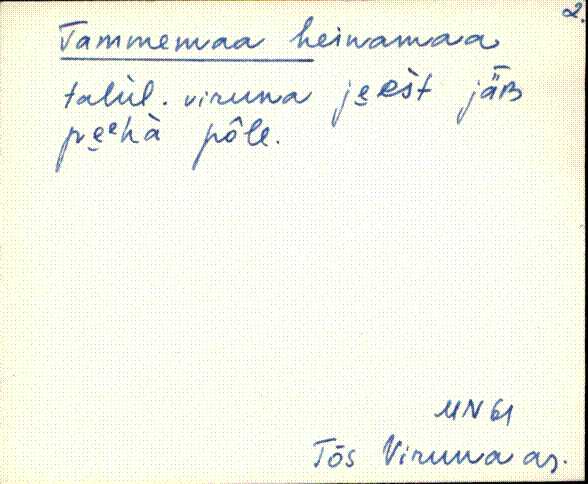 2.
Tammemaa heinamaa
talùl. viruna je̬est jǟʙ
pe̬e̬hà pôle.
MN 61
Tõs Viruna as.